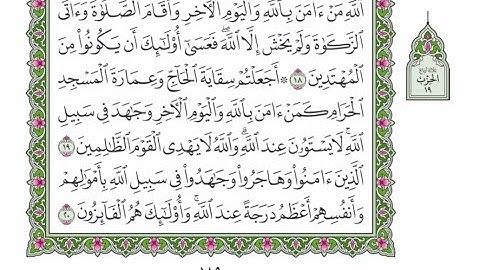 ٱللَّهِ مَنْ ءَامَنَ بِٱللَّهِ وَٱلْيَوْمِ ٱلْأَخِرِ وَأَقَامَ ٱلصَّلَوٰةَ وَءَاتَى
ٱلزَّكَوٰةَ وَلَمْ يَخْشَ إِلَّا ٱللَّهَ ۖ فَعَسَىٰٓ أُو۟لَٰٓئِكَ أَن يَكُونُوا۟ مِنَ
ٱلْمُهْتَدِينَ ١٨ ۞ أَجَعَلْتُمْ سِقَايَةَ ٱلْحَآجِّ وَعِمَارَةَ ٱلْمَسْجِدِ
ٱلْحَرَامِ كَمَنْ ءَامَنَ بِٱللَّهِ وَٱلْيَوْمِ ٱلْأَخِرِ وَجَٰهَدَ فِى سَبِيلِ
ٱللَّهِ ۚ لَا يَسْتَوُۥنَ عِندَ ٱللَّهِ ۗ وَٱللَّهُ لَا يَهْدِى ٱلْقَوْمَ ٱلظَّٰلِمِينَ ١٩
ٱلَّذِينَ ءَامَنُوا۟ وَهَاجَرُوا۟ وَجَٰهَدُوا۟ فِى سَبِيلِ ٱللَّهِ بِأَمْوَٰلِهِمْ
وَأَنفُسِهِمْ أَعْظَمُ دَرَجَةً عِندَ ٱللَّهِ ۚ وَأُو۟لَٰٓئِكَ هُمُ ٱلْفَآئِزُونَ ٢٠
الحزب
١٩